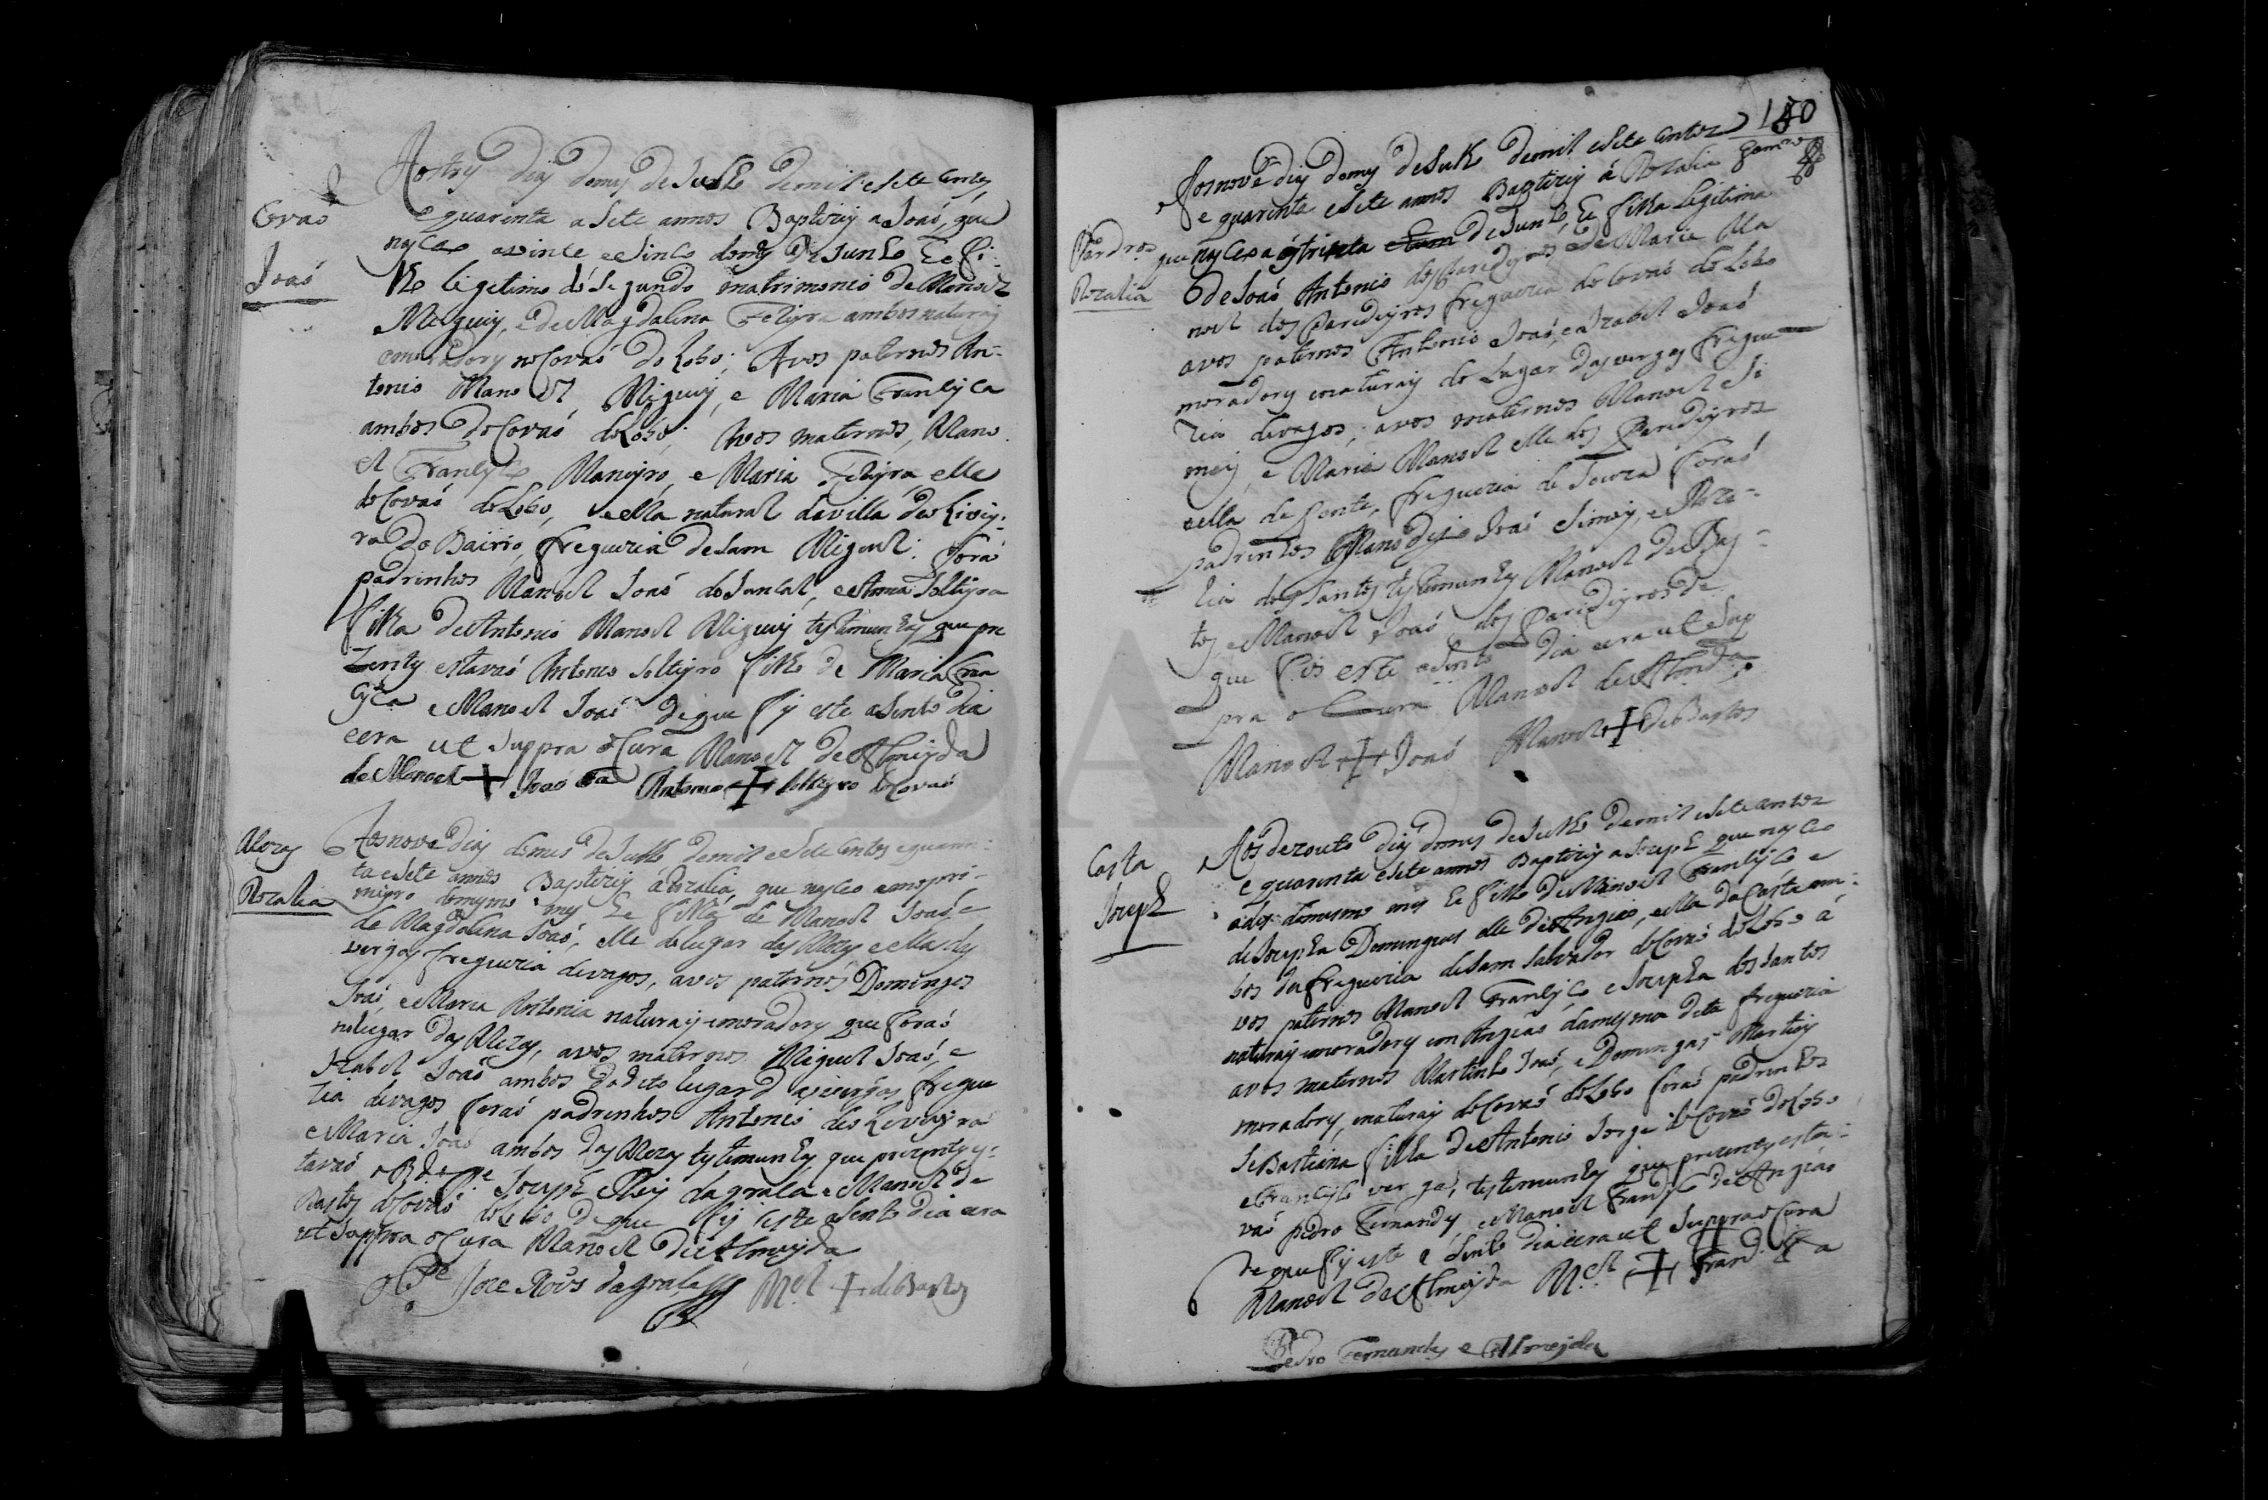 Covaõ
Joaõ
Aos tres dias do mes de Julho de mil e sete centos
e quarenta a sete annos Baptizei a Joaõ, que
nasceo a vinte e sinco do mes de Junho he fi-
lho legitimo do segundo matrimonio de Manoel
Migueis, e de Magdalena ambos naturais
e moradores no Covaõ do Lobo; Avos paternos An-
tonio Manoel Migueis, e Maria Francisca
ambos do Covaõ do Lobo; Avos maternos, Mano
el Francisco Manoyro, e Maria elle
do Covaõ do Lobo, e ella natural da villa de
do Bairro, freguezia de Sam Miguel: foraõ
padrinhos Manoel Joaõ do Juncal, e Anna Solteyra
filha de Antonio Manoel Migueis testemunhas que pre
zentes estavaõ Antonio Solteyro filho de Maria Fran
cisca e Manoel Joaõ de que fis este asento dia
e era ut suppra o Cura Manoel de Almeyda
de Manoel + Joaõ Antonio + Solteyro do Covaõ
Mezas
Rozalia
Aos nove dias do mes de Julho de mil e sete centos e quaren-
ta e sete annos Baptizei a Rozalia, que nasceo em o pri-
meyro do mesmo mes he filha de Manoel Joaõ, e
de Magdalena Joaõ, elle do lugar das Mezas e ella das
vergas freguezia de vagos, avos paternos Domingos
Joaõ, e Maria Antonia naturais e moradores que foraõ
no lugar das Mezas, avos maternos Miguel Joaõ, e
Izabel Joaõ ambos do dito lugar das vergas fregue
zia de vagos foraõ padrinhos Antonio de Oliveyra
e Maria Joaõ ambos das Mezas testemunhas que prezentes es-
tavaõ o Rdo Pe Joseph da grala e Manoel de
Bastos do Covaõ do Lobo de que fis este asento dia e era
ut suppra o Cura Manoel de Almeyda
o Pe Joze Rois da grala Mel + de Bastos
150
Paredros
Rozalia
Aos nove dias do mes de Julho de mil e sete centos
e quarenta e sete annos Baptizei á Rozalia
que nasceo aos trinta de Junho, he filha legitima
de Joaõ Antonio dos Paredeyros e de Maria Ma
noel dos Paredeyros freguezia do Covaõ do Lobo
avos paternos Antonio Joaõ, e Izabel Joaõ
moradores e naturais do Lugar das vergas fregue
zia de vagos; avos maternos Manoel Si
moes, e Maria Manoel elle dos Paredeyros
e ella da fonte, freguezia de Souza foraõ
padrinhos Manoel Joaõ Simoes, e Roza-
lia dos Santos testemunhas Manoel de Bas-
tos e Manoel Joaõ dos Paredeyros de
que fis este asento dia e era ut sup
pra o Cura Manoel de Almeyda
Manoel + Joaõ Manoel + de Bastos
Costa
Joseph
Aos dezouto dias do mes de Julho de mil e sete centos
e quarenta e sete annos Baptizei a Joseph que nasceo
a do mesmo mes he filho de Manoel Francisco e
de Josepha Domingues elle de Angiaõ, e ella da Costa am-
bos da freguezia de Sam Salvador do Covaõ do Lobo á
vos paternos Manoel Francisco e Josepha dos Santos
naturais e moradores em Angiaõ da mesma dita freguezia
avos maternos Martinho Joaõ, e Domingas Martins
moradores, e naturais do Covaõ do Lobo foraõ padrinhos
Sebastiana filha de Antonio Jorge do Covaõ do Lobo
e Francisco vergas, testemunhas que prezentes esta-
vaõ pedro Fernandes, e Manoel Francisco de Angiaõ
de que fis este asento dia e era ut suppra o Cura
Manoel de Almeyda Mel + Francisco
Pedro Fernandes e Almeyda